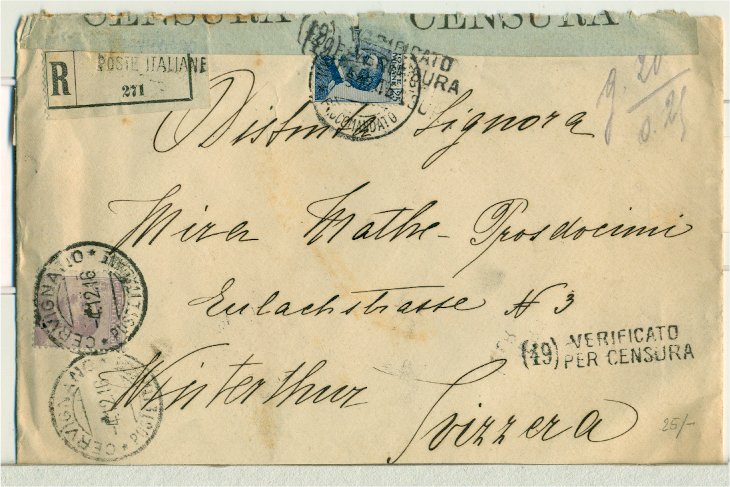 CENSURA CENSURA
R POSTE ITALIANE
271
(49) VERIFICATO
PER CENSURA
RACCOMANDATO
g. 20
0.25
Distinta Signora
Mira Mathe-Prosdocimi
Eulachstrasse N 3
(49) VERIFICATO
PER CENSURA
Winterthur
Svizzera
25/-
CERVIGNANO
-4.12.16
CERVIGNANO
-4.12.16